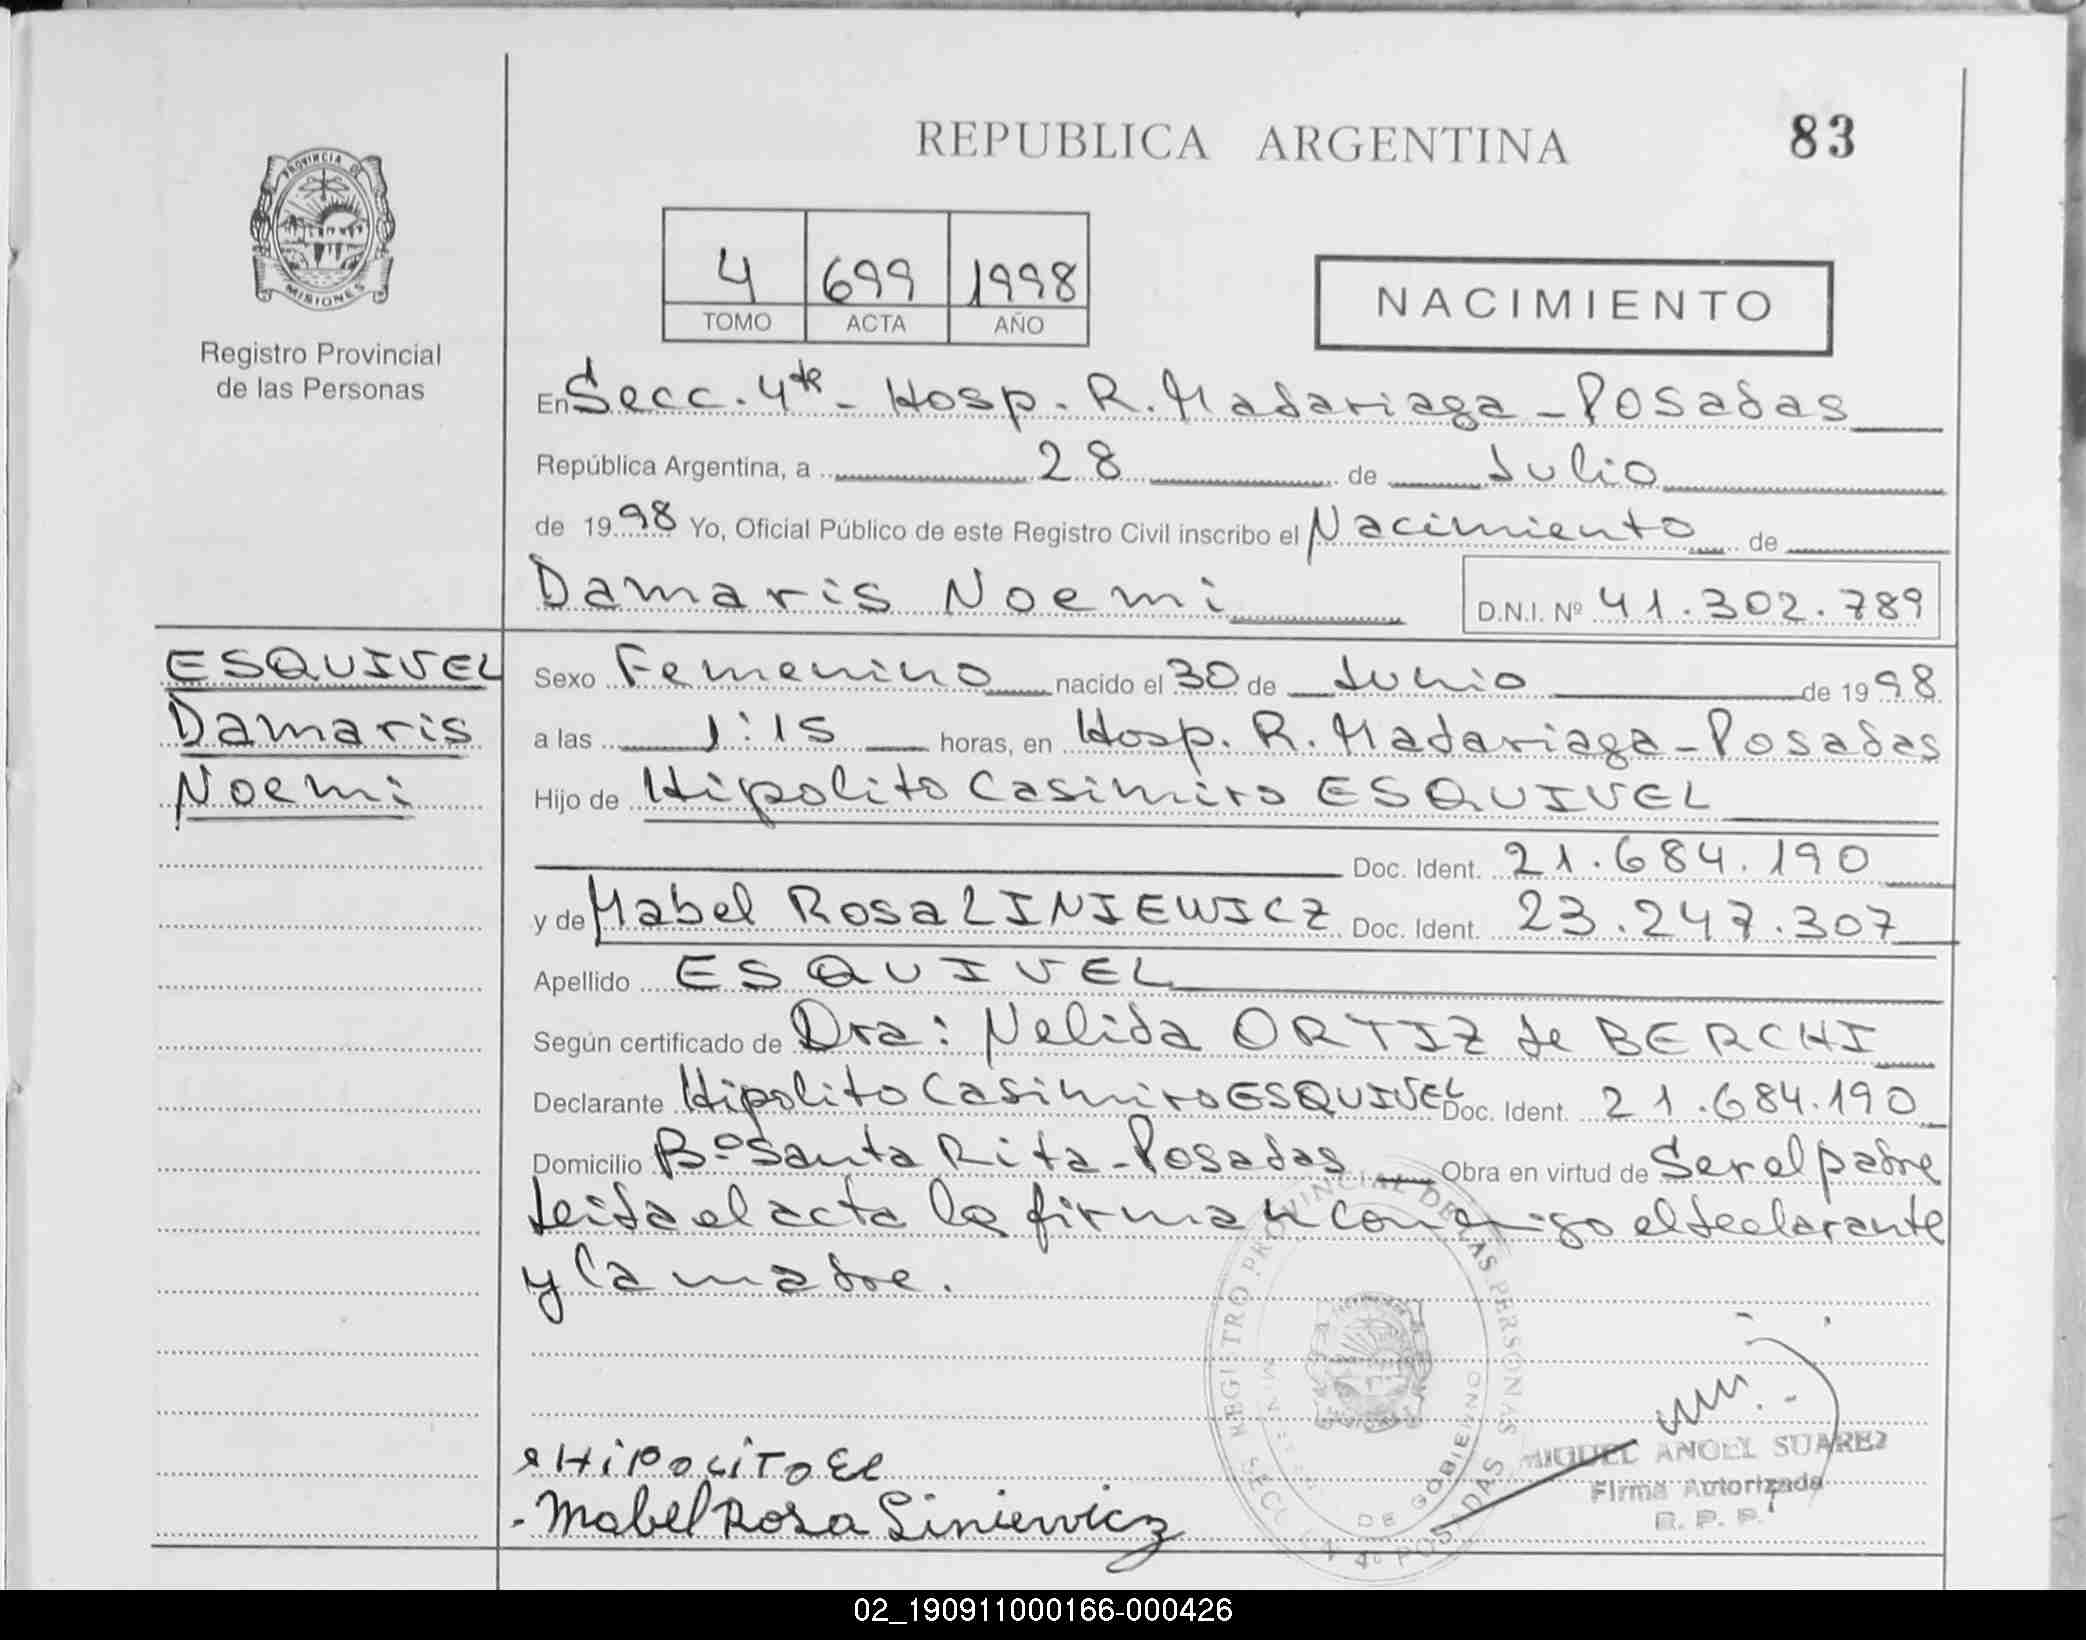 REPUBLICA ARGENTINA
83
PROVINCIA DE
MISIONES
Registro Provincial
de las Personas
4 699 1998
TOMO ACTA AÑO
NACIMIENTO
En Secc. 4ta - Hosp. R. Madariaga - Posadas
República Argentina, a 28 de Julio
de 1998 Yo, Oficial Público de este Registro Civil inscribo el Nacimiento de
Damaris Noemi D.N.I. Nº 41.302.789
ESQUIVEL
Damaris
Noemi
Sexo Femenino nacido el 30 de Junio de 1998
a las 1:15 horas, en Hosp. R. Madariaga - Posadas
Hijo de Hipolito Casimiro ESQUIVEL
Doc. Ident. 21.684.190
y de Mabel Rosa LINIEWICZ Doc. Ident. 23.247.307
Apellido ESQUIVEL
Según certificado de Dra: Nelida ORTIZ de BERCHI
Declarante Hipolito Casimiro ESQUIVEL Doc. Ident. 21.684.190
Domicilio Bº Santa Rita - Posadas Obra en virtud de Ser el padre
Leida el acta la firman conmigo el declarante
y la madre.
REGISTRO PROVINCIAL DE LAS PERSONAS
DE GOBIERNO
4º POSADAS
HiPoLiTo EC
- Mabel Rosa Liniewicz
MIGUEL ANGEL SUAREZ
Firma Autorizada
R. P. P.
02_190911000166-000426